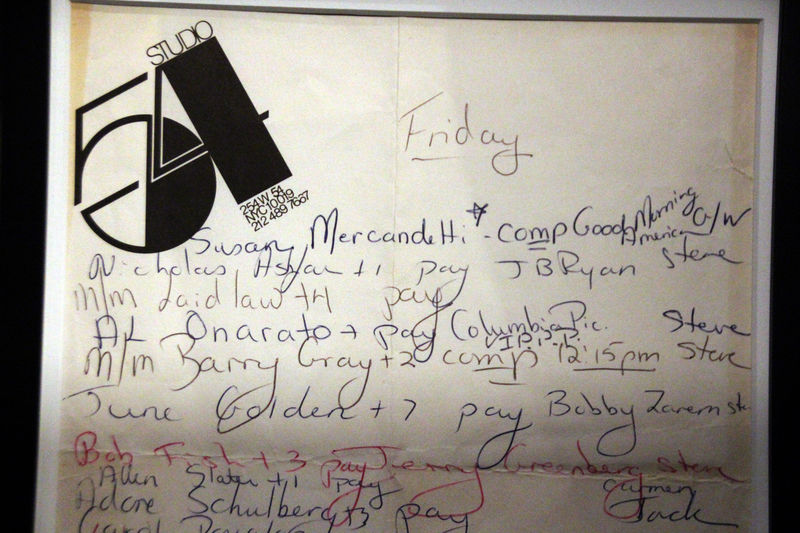 STUDIO
54
254 W. 54
NYC 10019
212 489 7667
Friday
Susan Mercandetti - comp Good Morning America G/W
Nicholas +1 pay JB Ryan Steve
m/m Laidlaw +4 pay
Onarato + pay Columbia Pic. Steve
V.I.P.
m/m Barry Gray +2 comp 12:15pm Steve
June Golden + 7 pay Bobby Zarem
Bob +3 pay Jerry Greenberg Steve
Allen Slater +1 pay Carmen
Adore Schulberg +3 pay Jack
Carol